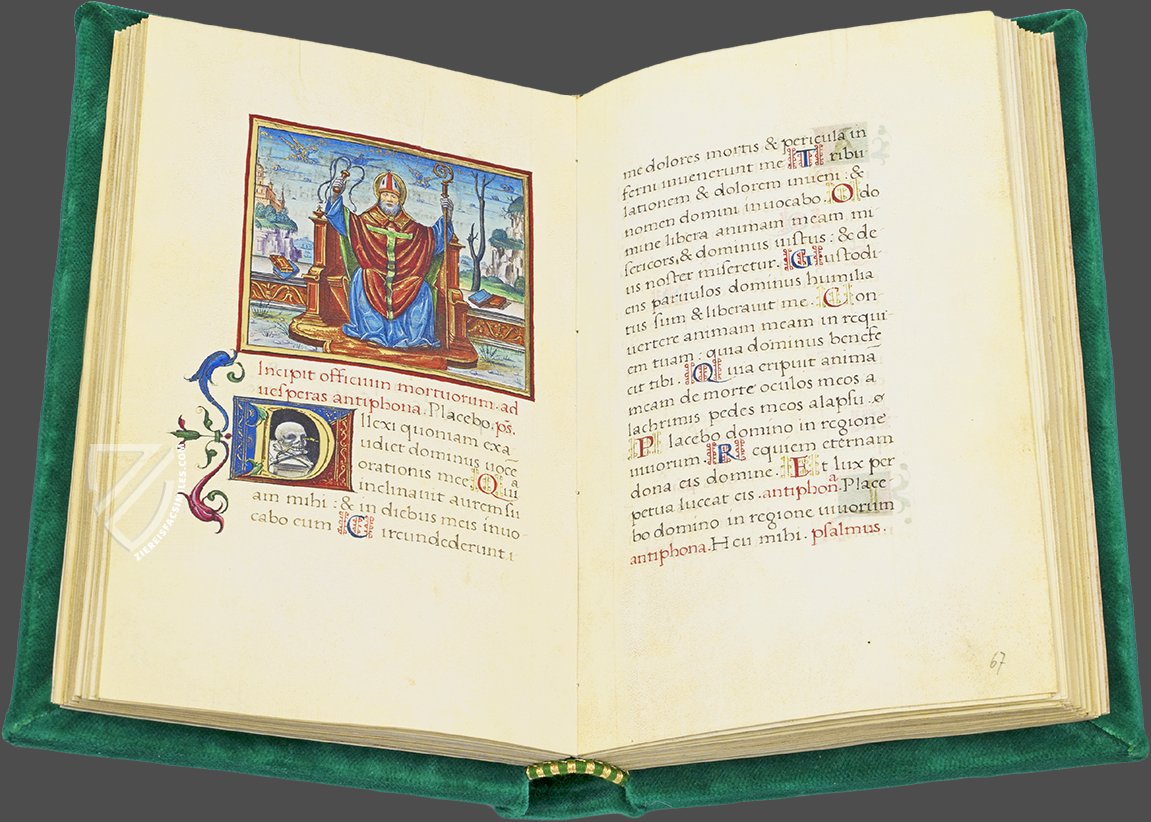 Incipit officium mortuorum. ad
uesperas antiphona. Placebo. ps.
DIlexi quoniam exa
udiet dominus uoce
orationis mee. Qui a
inclinauit aurem su
am mihi : & in diebus meis inuo
cabo eum Circundederunt
ZIEREISFACSIMILES.COM
me dolores mortis & pericula in
ferni inuenerunt me Tribu
lationem & dolorem inueni : &
nomen domini inuocabo. O do
mine libera animam meam mi
sericors, & dominus iustus : & de
us noster miseretur. Custodi
ens paruulos dominus humilia
tus sum & liberauit me. Con
uertere animam meam in requi
em tuam : quia dominus benefe
cit tibi. Quia eripuit anima
meam de morte oculos meos a
lachrimis pedes meos alapsu.
Placebo domino in regione
uiuorum. Requiem eternam
dona eis domine. Et lux per
petua luceat eis. antiphona. Place
bo domino in regione uiuorum
antiphona. Heu mihi. psalmus.
67